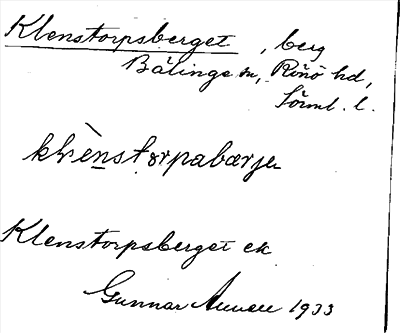 Klenstorpsberget, berg
Bälinge sn, Rönö hd,
Sörml. l.
klènstorpabærje
Klenstorpsberget ek
Gunnar 1933